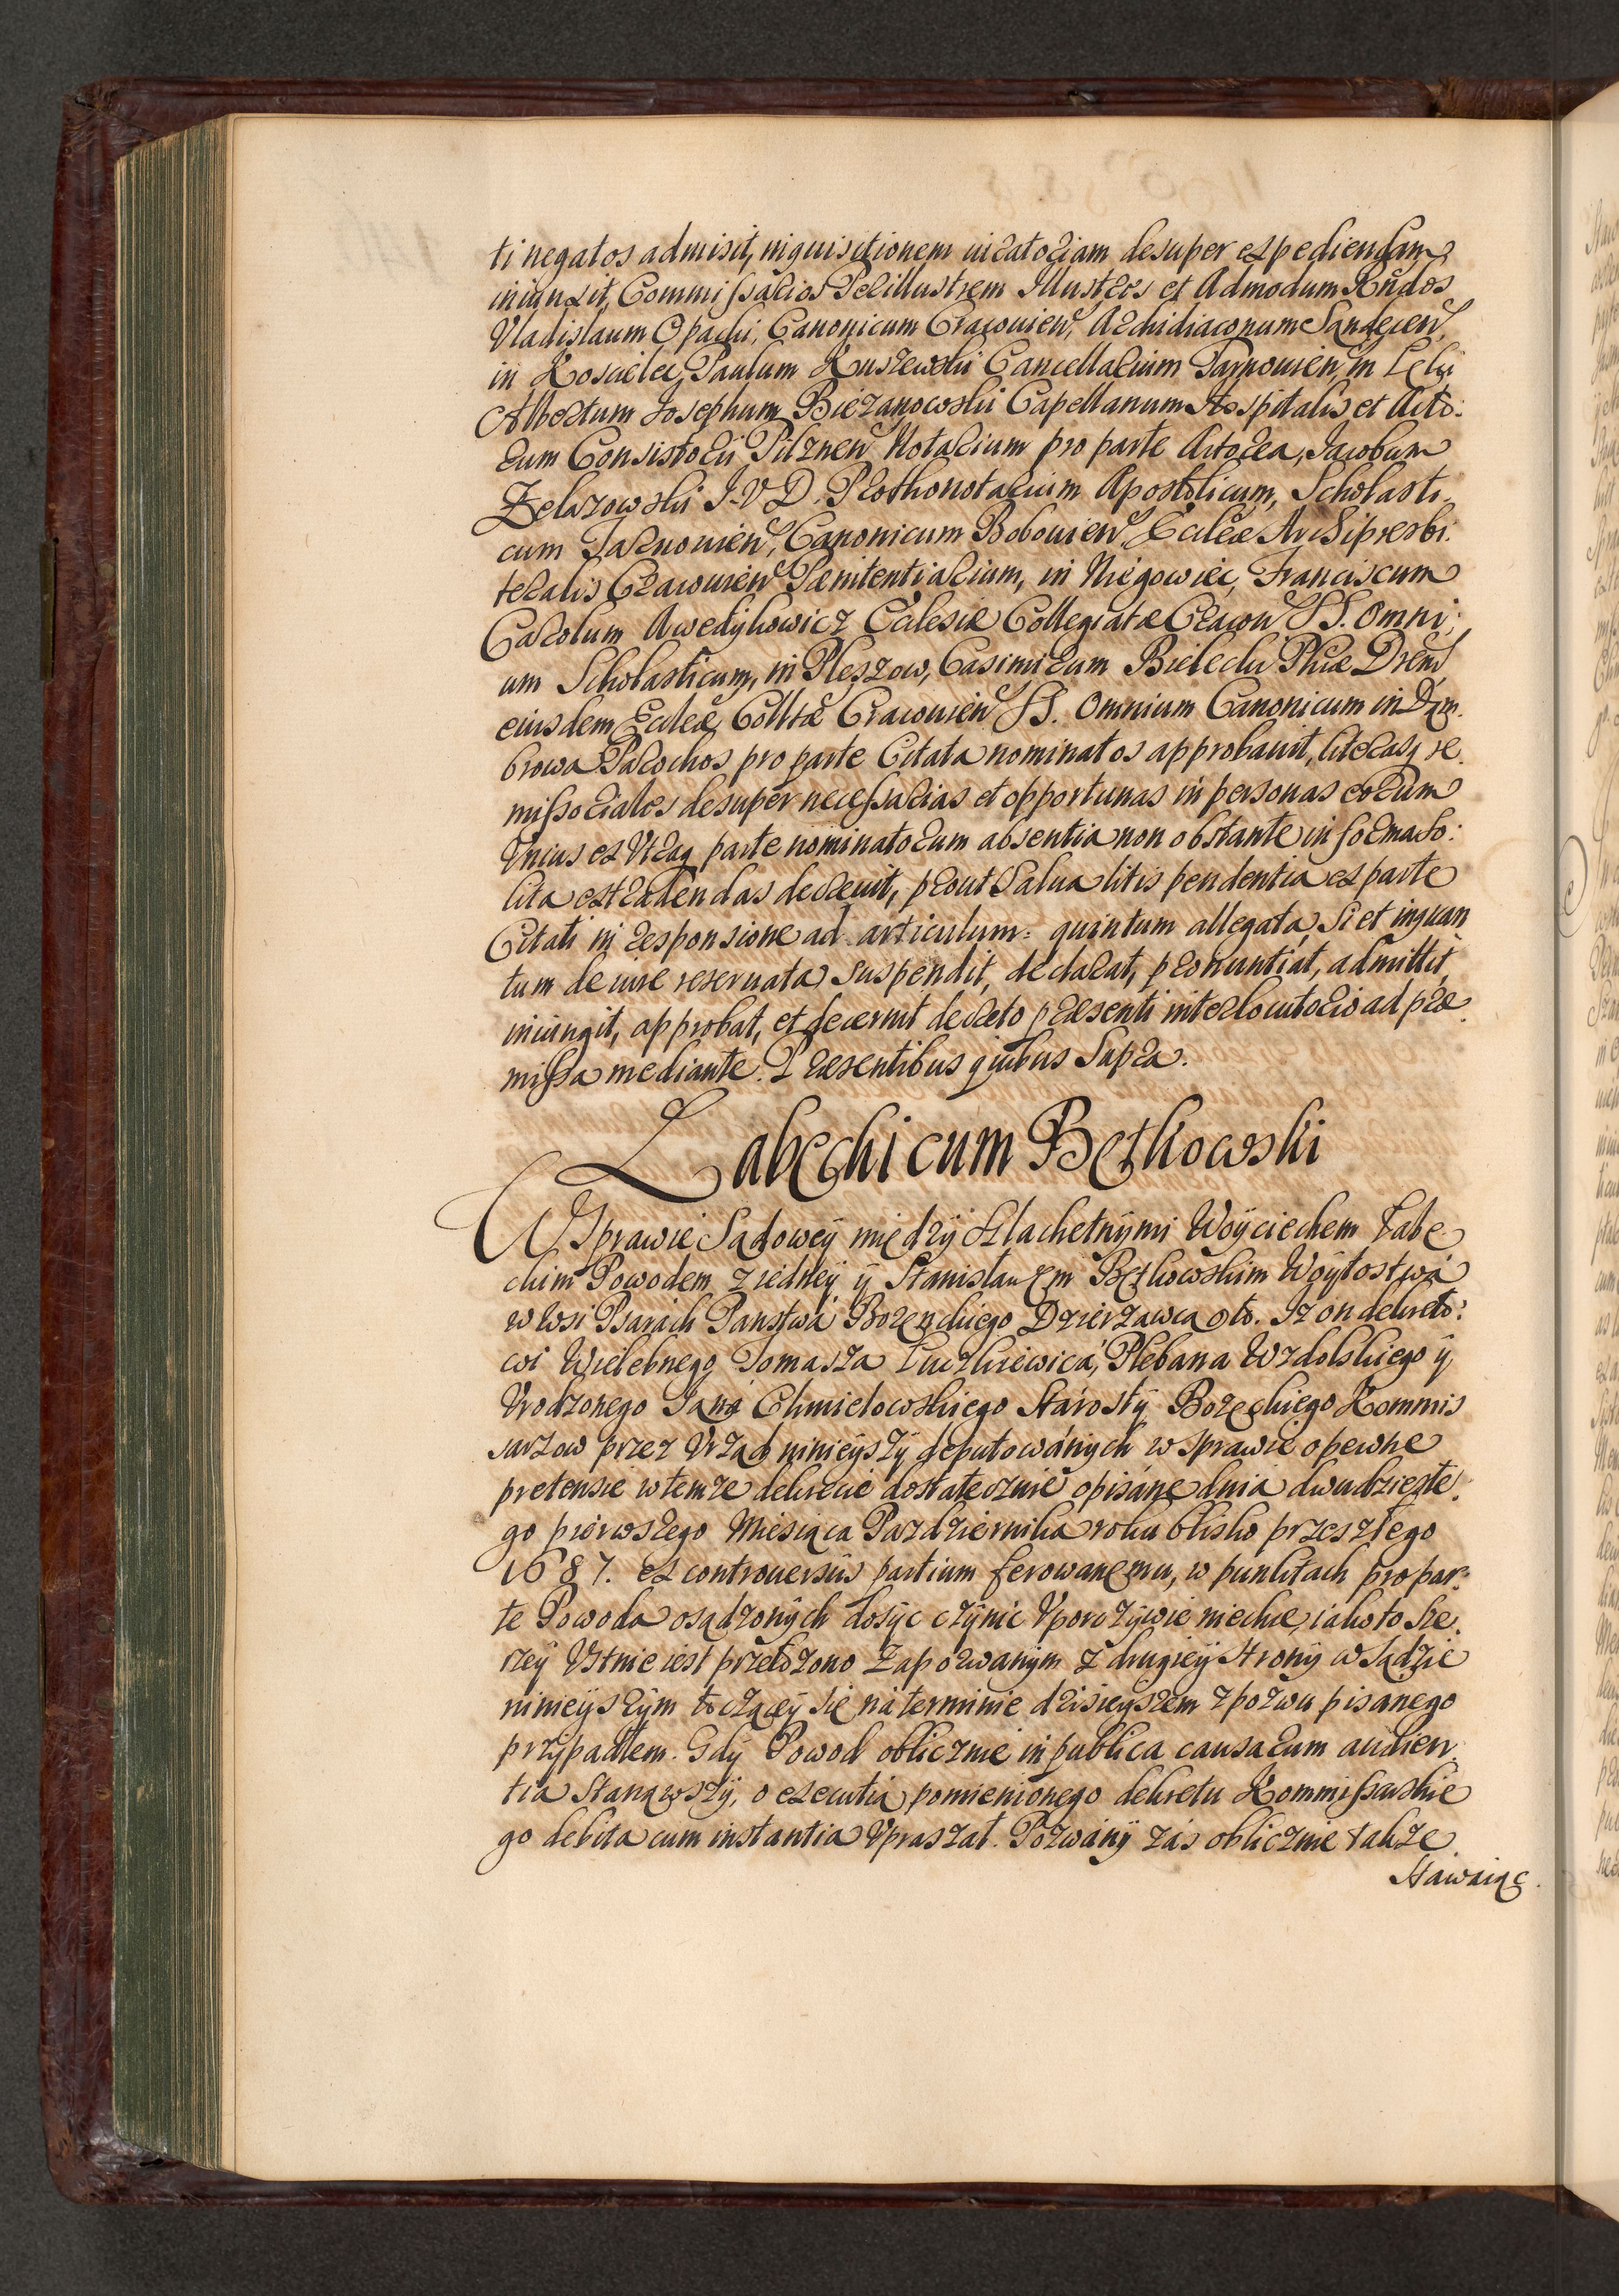 ti negatos admisit, inquisitionem iuratoriam desuper expediendam
iniunxit, Commissarios Perillustrem Illustres et Admodum Rńdos
Vladislaum Opacki, Canonicum Cracouien, Archidiaconum Sandecen,
in Koscielec, Paulum Kuszewski Cancellarium Tarnouien, in Lelu
Albertum Josephum Biezanowski Capellanum Hospitalis et Acto:
rum Consistorii Pilznen Notarium pro parte Actorea, Jacobum
Zelazowski J.V.D. Prothonotarium Apostolicum, Scholasti-
cum Tarnouien, Canonicum Bobouien Eccleæ Archipresbi:
teralis Cracouien Pænitentiarium, in Niegowiec, Franciscum
Carolum Awedykowicz Eclesiæ Collegiatæ Cracou SS. Omni:
um Scholasticum, in Pleszow, Casimirum Bielecki Phiæ Drem
eiusdem Eccleæ Colltæ Cracouien SS. Omnium Canonicum in Dąm-
browa Parochos pro parte Citata nominatos approbauit, literasq re-
missoriales desuper necessarias et opportunas in personas eorum
Vnius ex Vtraq parte nominatorum absentia non obstante in forma so:
lita extradendas decreuit, prout Salua litis pendentia ex parte
Citati in responsione ad articulum quintum allegata, si et inquan
tum de iure reseruata suspendit, declarat, pronuntiat, admittit
iniungit, approbat, et decernit decreto præsenti interlocutorio ad præ-
missa mediante. Præsentibus quibus Supra.
Łabęcki cum Bętkowski
W Sprawie Sądowey między Szlachetnymi Woyciechem Łabę
ckim Powodem z iedney y Stanisławem Bętkowskim Woytostwa
w wsi Psarach Panstwa Bozęckiego Dzierzawcą oto. Iz on dekreto:
wi Wielebnego Tomasza Łuczkiewica, Plebana Wzdolskiego y
Vrodzonego Jana Chmielowskiego Starosty Bozęckiego Kommis
sarzow przez Vrząd ninieyszy deputowanych w sprawie o pewne
pretensie w temze dekrecie dostatecznie opisane dnia dwudzieste-
go pierwszego Miesiąca Pazdziernika roku blisko przeszłego
1687. ex controuersiis partium ferowanemu, w punktach pro par:
te Powoda osądzonych dosyc czynic Vporczywie niechce, iako to Sze-
rzey Vstnie iest przełozono Zapozwanym z drugiey strony w Sądzie
ninieyszym toczącey się na terminie dzisieyszem z pozwu pisanego
przypadłem. Gdy Powod oblicznie in publica causarum audien-
tia Stanąwszy, o execution pomienionego dekretu Kommissarskie
go debita cum instantia Vpraszał. Pozwany zás oblicznie takze
Stawaiąc.